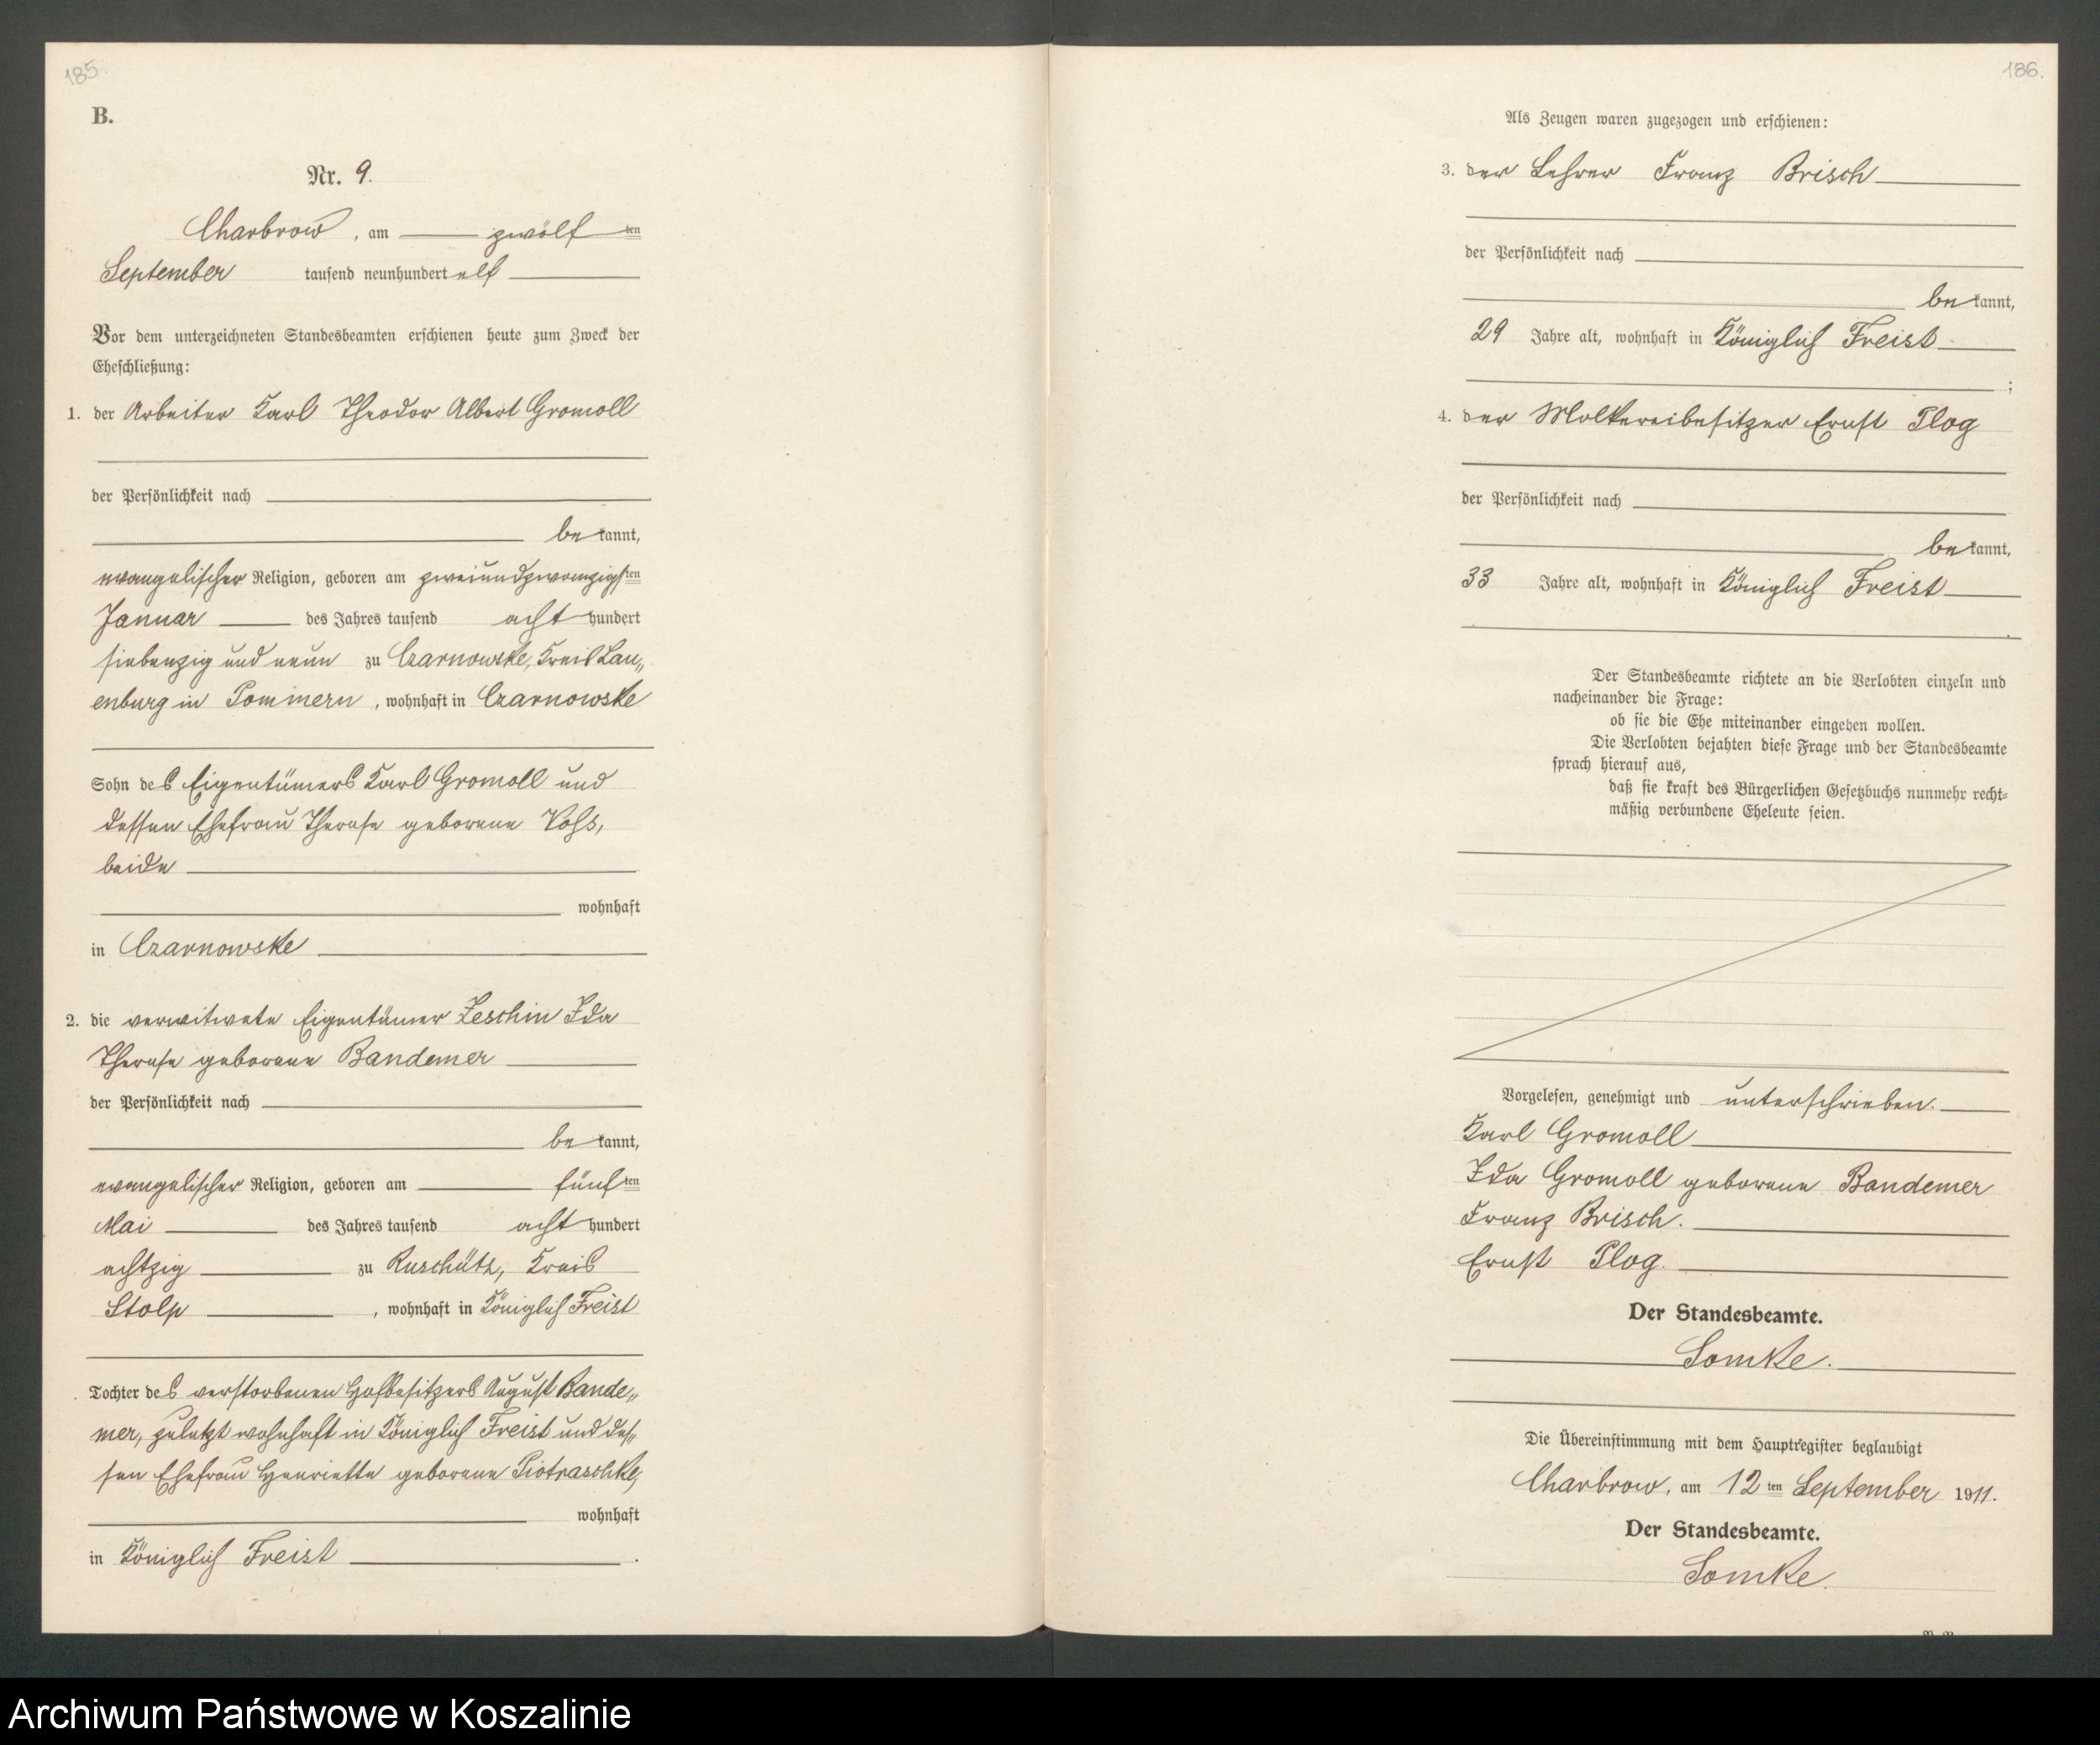 185
B.
Nr. 9.
Charbrow, am zwölf ten
September tausend neunhundert elf
Vor dem unterzeichneten Standesbeamten erschienen heute zum Zweck der
Eheschließung:
1. der Arbeiter Karl Theodor Albert Gromoll
der Persönlichkeit nach
be kannt,
evangelischer Religion, geboren am zweiundzwanzigsten
Januar des Jahres tausend acht hundert
siebenzig und neun zu Czarnowske, Kreis Lau„
enburg in Pommern, wohnhaft in Czarnowske
Sohn des Eigentümers Karl Gromoll und
dessen Ehefrau Therese geborene Voß,
beide
wohnhaft
in Czarnowske
2. die verwitwete Eigentümer Zeschin Ida
Therese geborene Bandemer
der Persönlichkeit nach
be kannt,
evangelischer Religion, geboren am fünf ten
Mai des Jahres tausend acht hundert
achtzig zu Ruschütz, Kreis
Stolp, wohnhaft in Königlich Freist
Tochter des verstorbenen Hofbesitzers August Bande„
mer, zuletzt wohnhaft in Königlich Freist und des„
sen Ehefrau Henriette geborene Piotraschke,
wohnhaft
in Königlich Freist.
186.
Als Zeugen waren zugezogen und erschienen:
3. der Lehrer Franz Brisch
der Persönlichkeit nach
be kannt,
29 Jahre alt, wohnhaft in Königlich Freist
;
4. der Molkereibesitzer Ernst Plog
der Persönlichkeit nach
be kannt,
33 Jahre alt, wohnhaft in Königlich Freist
.
Der Standesbeamte richtete an die Verlobten einzeln und
nacheinander die Frage:
ob sie die Ehe miteinander eingehen wollen.
Die Verlobten bejahten diese Frage und der Standesbeamte
sprach hierauf aus,
daß sie kraft des Bürgerlichen Gesetzbuchs nunmehr recht-
mäßig verbundene Eheleute seien.
Vorgelesen, genehmigt und unterschrieben.
Karl Gromoll
Ida Gromoll geborene Bandemer
Franz Brisch.
Ernst Plog.
Der Standesbeamte.
Somke.
Die Übereinstimmung mit dem Hauptregister beglaubigt
Charbrow, am 12 ten September 1911.
Der Standesbeamte.
Somke.
Archiwum Państwowe w Koszalinie